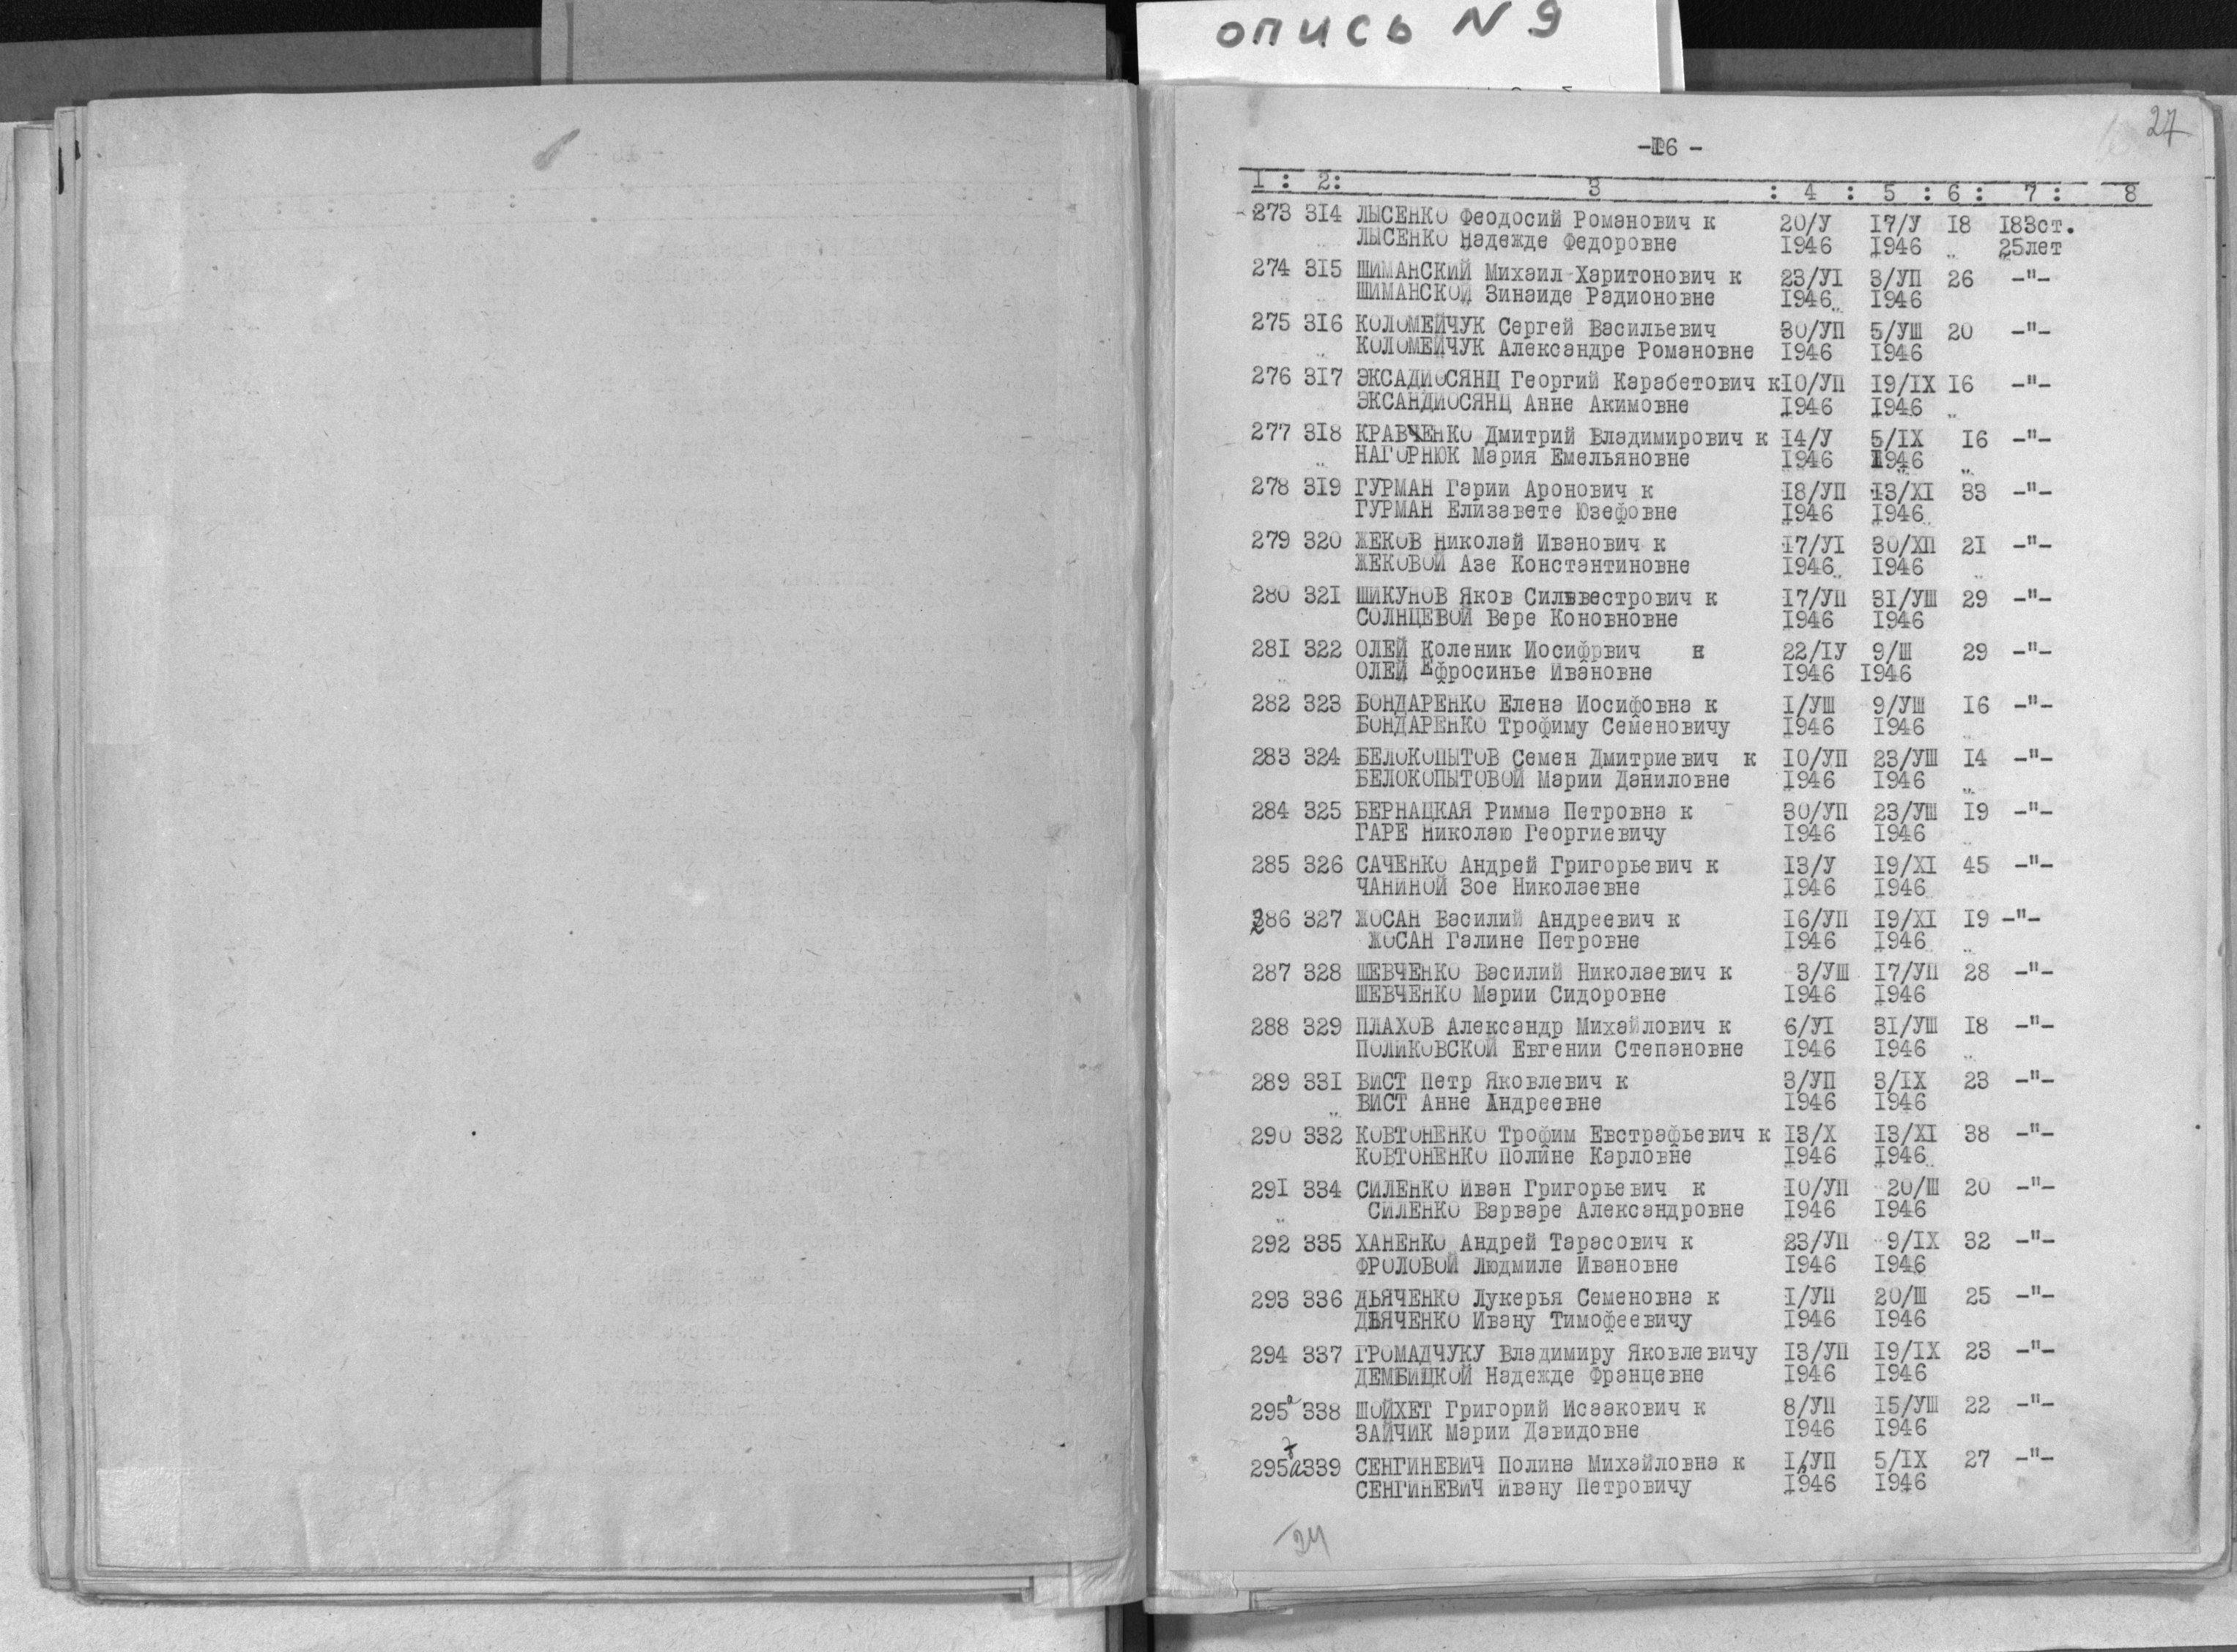 опись N 9
27
-16 -
1 : 2: 3 : 4 : 5 : 6 : 7 : 8
273 314 ЛЫСЕНКО Феодосий Романович к 20/У 17/У 18 183ст.
ЛЫСЕНКО Надежде Федоровне 1946 1946 25лет
274 315 ШИМАНСКИЙ Михаил Харитонович к 23/УI 3/УП 26 -"-
ШИМАНСКОЙ Зинаиде Радионовне 1946 1946
275 316 КОЛОМЕЙЧУК Сергей Васильевич 30/УП 5/УШ 20 -"-
КОЛОМЕЙЧУК Александре Романовне 1946 1946
276 317 ЭКСАДИОСЯНЦ Георгий Карабетович к 10/УП 19/IX 16 -"-
ЭКСАНДИОСЯНЦ Анне Акимовне 1946 1946
277 318 КРАВЧЕНКО Дмитрий Владимирович к 14/У 5/IX 16 -"-
НАГОРНЮК Мария Емельяновне 1946 1946
278 319 ГУРМАН Гарии Аронович к 18/УП 13/XI 33 -"-
ГУРМАН Елизавете Юзефовне 1946 1946
279 320 ЖЕКОВ Николай Иванович к 17/УI 30/ХП 21 -"-
ЖЕКОВОЙ Азе Константиновне 1946 1946
280 321 ШИКУНОВ Яков Сильвестрович к 17/УП 31/УШ 29 -"-
СОЛНЦЕВОЙ Вере Коновновне 1946 1946
281 322 ОЛЕЙ Коленик Иосифрвич к 22/IУ 9/Ш 29 -"-
ОЛЕЙ Ефросинье Ивановне 1946 1946
282 323 БОНДАРЕНКО Елена Иосифовна к 1/УШ 9/УШ 16 -"-
БОНДАРЕНКО Трофиму Семеновичу 1946 1946
283 324 БЕЛОКОПЫТОВ Семен Дмитриевич к 10/УП 23/УШ 14 -"-
БЕЛОКОПЫТОВОЙ Марии Даниловне 1946 1946
284 325 БЕРНАЦКАЯ Римма Петровна к 30/УП 23/УШ 19 -"-
ГАРЕ Николаю Георгиевичу 1946 1946
285 326 САЧЕНКО Андрей Григорьевич к 13/У 19/XI 45 -"-
ЧАНИНОЙ Зое Николаевне 1946 1946
286 327 ЖОСАН Василий Андреевич к 16/УП 19/XI 19 -"-
ЖОСАН Галине Петровне 1946 1946
287 328 ШЕВЧЕНКО Василий Николаевич к 3/УШ 17/УП 28 -"-
ШЕВЧЕНКО Марии Сидоровне 1946 1946
288 329 ПЛАХОВ Александр Михайлович к 6/УI 31/УШ 18 -"-
ПОЛИКОВСКОЙ Евгении Степановне 1946 1946
289 331 ВИСТ Петр Яковлевич к 3/УП 3/IX 23 -"-
ВИСТ Анне Андреевне 1946 1946
290 332 КОВТОНЕНКО Трофим Евстрафьевич к 13/X 13/XI 38 -"-
КОВТОНЕНКО Полине Карловне 1946 1946
291 334 СИЛЕНКО Иван Григорьевич к 10/УП 20/Ш 20 -"-
СИЛЕНКО Варваре Александровне 1946 1946
292 335 ХАНЕНКО Андрей Тарасович к 23/УП 9/IX 32 -"-
ФРОЛОВОЙ Людмиле Ивановне 1946 1946
293 336 ДЬЯЧЕНКО Лукерья Семеновна к 1/УП 20/Ш 25 -"-
ДЬЯЧЕНКО Ивану Тимофеевичу 1946 1946
294 337 ГРОМАДЧУКУ Владимиру Яковлевичу 13/УП 19/IX 23 -"-
ДЕМБИЦКОЙ Надежде Францевне 1946 1946
295 338 ШОЙХЕТ Григорий Исаакович к 8/УП 15/УШ 22 -"-
ЗАЙЧИК Марии Давидовне 1946 1946
295а 339 СЕНГИНЕВИЧ Полина Михайловна к 1/УП 5/IX 27 -"-
СЕНГИНЕВИЧ Ивану Петровичу 1946 1946
24